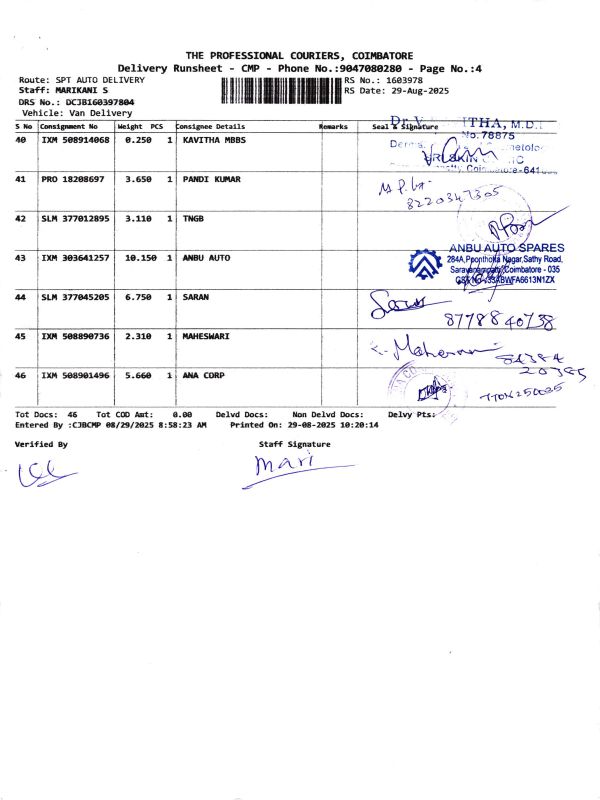 THE PROFESSIONAL COURIERS, COIMBATORE
Delivery Runsheet - CMP - Phone No.:9047080280 - Page No.:4
Route: SPT AUTO DELIVERY RS No.: 1603978
Staff: MARIKANI S RS Date: 29-Aug-2025
DRS No.: DCJB160397804
Vehicle: Van Delivery
S No Consignment No Weight PCS Consignee Details Remarks Seal & Signature
40 IXM 508914068 0.250 1 KAVITHA MBBS
No. 78875
41 PRO 18208697 3.650 1 PANDI KUMAR
8220347305
42 SLM 377012895 3.110 1 TNGB
43 IXM 303641257 10.150 1 ANBU AUTO
ANBU AUTO SPARES
284A, Poonthotta Nagar, Sathy Road,
Saravanampatty, Coimbatore - 035
44 SLM 377045205 6.750 1 SARAN
8778840738
45 IXM 508890736 2.310 1 MAHESWARI
84384
20385
46 IXM 508901496 5.660 1 ANA CORP
Tot Docs: 46 Tot COD Amt: 0.00 Delvd Docs: Non Delvd Docs: Delvy Pts:
Entered By :CJBCMP 08/29/2025 8:58:23 AM Printed On: 29-08-2025 10:20:14
Verified By Staff Signature
Mari